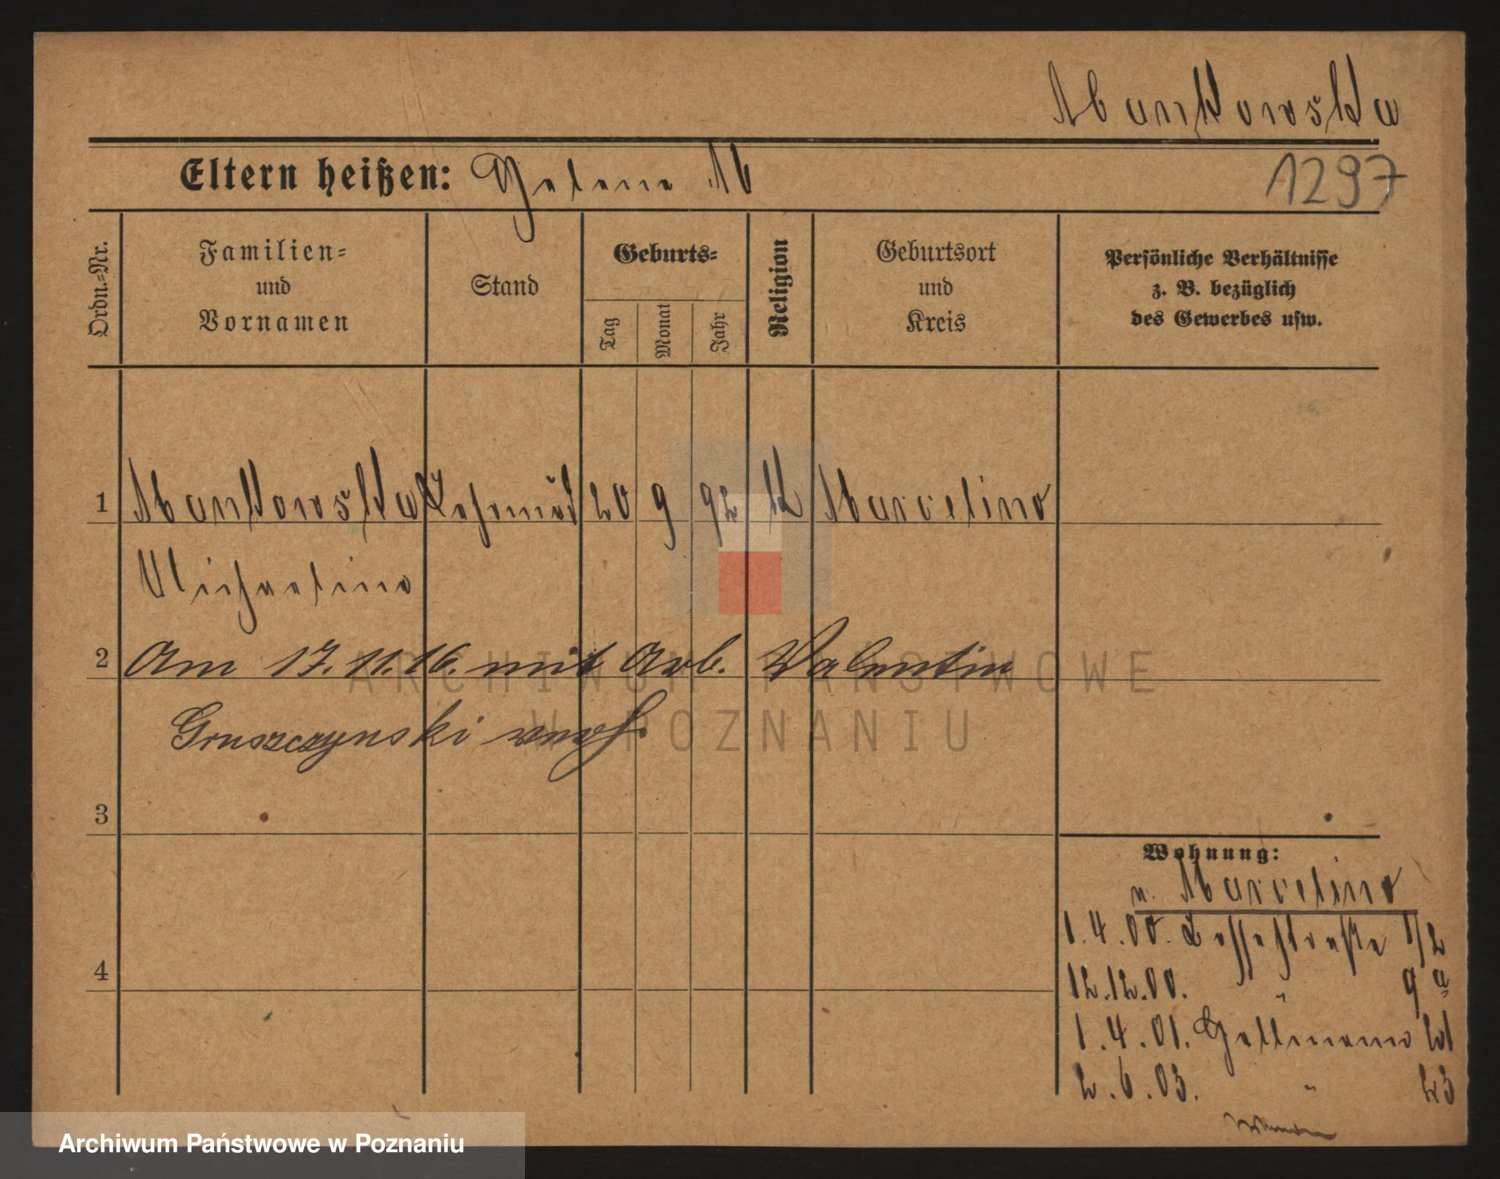 Mankowska
Eltern heißen: Helene M
1297
Ordn.-Nr.
Familien-
und
Vornamen
Stand
Geburts-
Tag
Monat
Jahr
Religion
Geburtsort
und
Kreis
Persönliche Verhältnisse
z. B. bezüglich
des Gewerbes usw.
1 Mankowska 20 9 92 k Marcelino
Michaelina
2 Am 17.11.16. mit Arb. Valentin
Gruszczynski verh.
3
4
Wohnung:
n. Marcelino
1.4.00. 1/2
12.12.00. " 9a
1.4.01. 21
2.6.03. " 23
ARCHIWUM PAŃSTWOWE
W POZNANIU
Archiwum Państwowe w Poznaniu